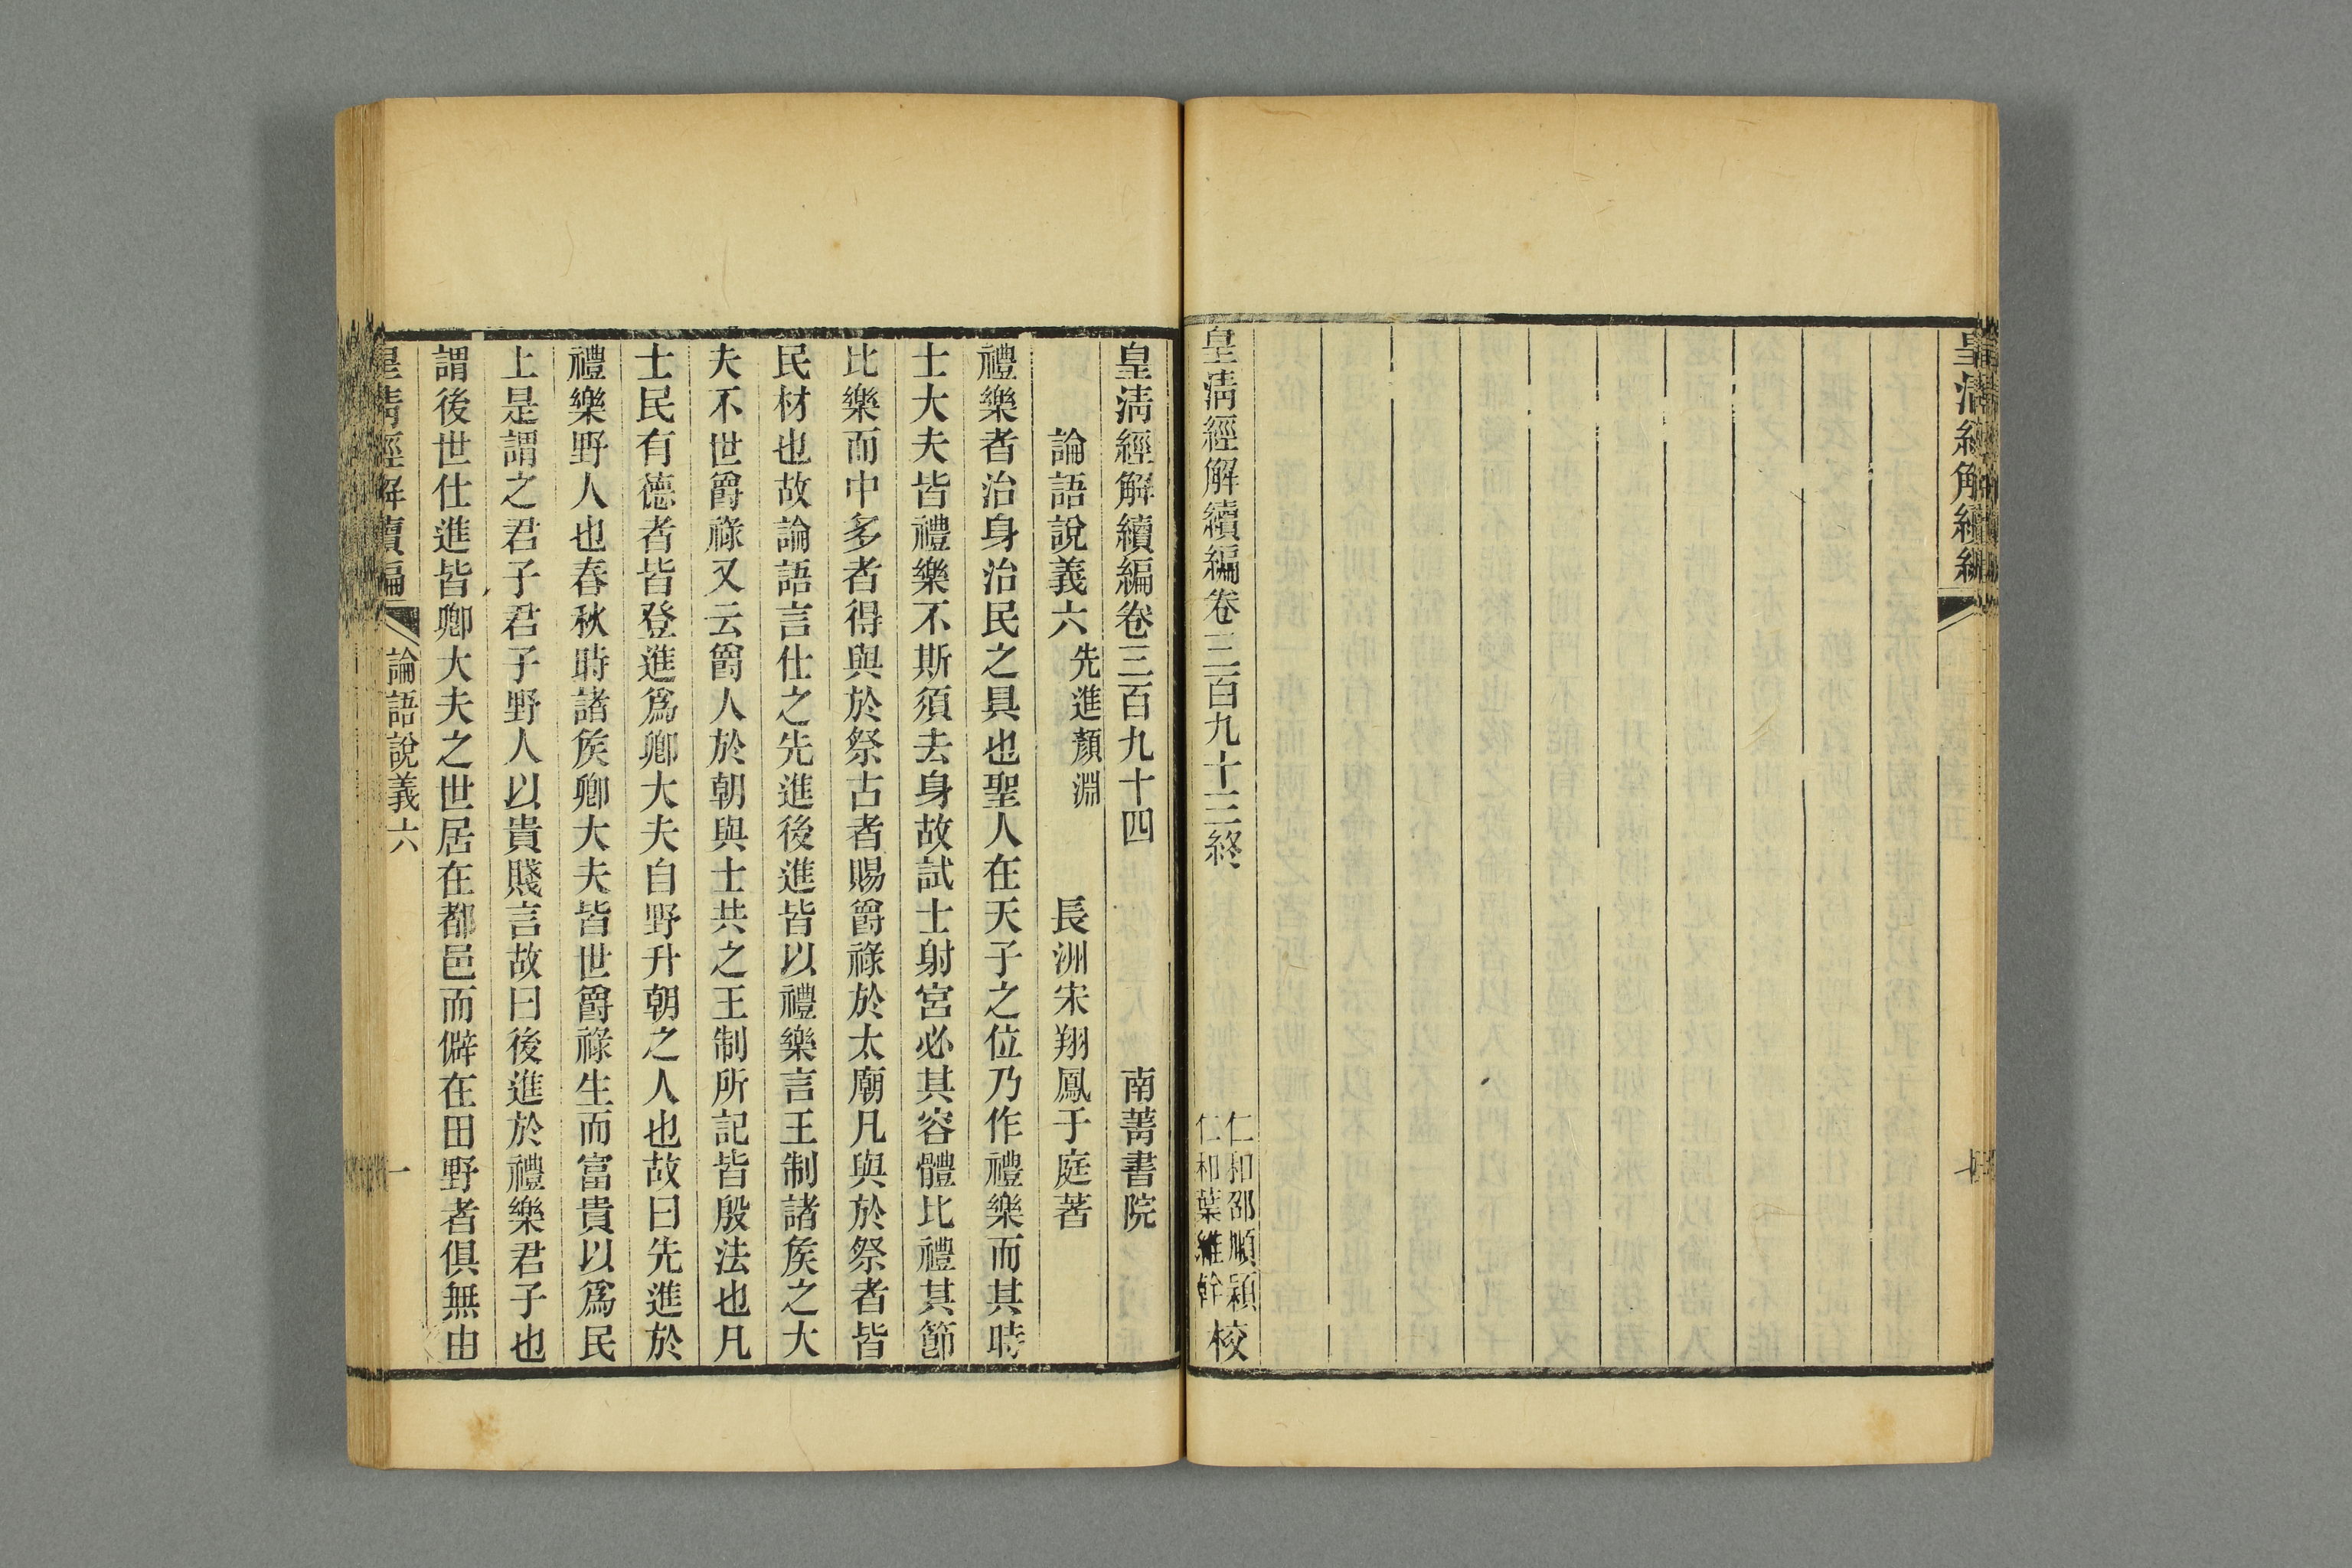 皇清經解續編
皇清經解續編卷三百九十三終
仁和邵順潁
仁和葉維幹
校
皇清經解續編卷三百九十四
南菁書院
論語說義六
先進
顏淵
長洲宋翔鳳于庭著
禮樂者治身治民之具也聖人在天子之位乃作禮樂而其時
士大夫皆禮樂不斯須去身故試士射宮必其容體比禮其節
比樂而中多者得與於祭古者賜爵祿於太廟凡與於祭者皆
民材也故論語言仕之先進後進皆以禮樂言王制諸矦之大
夫不世爵祿又云爵人於朝與士共之王制所記皆殷法也凡
士民有德者皆登進爲卿大夫自野升朝之人也故曰先進於
禮樂野人也春秋時諸矦卿大夫皆世爵祿生而富貴以爲民
上是謂之君子君子野人以貴賤言故曰後進於禮樂君子也
謂後世仕進皆卿大夫之世居在都邑而僻在田野者俱無由
皇清經解續編
論語說義六
一